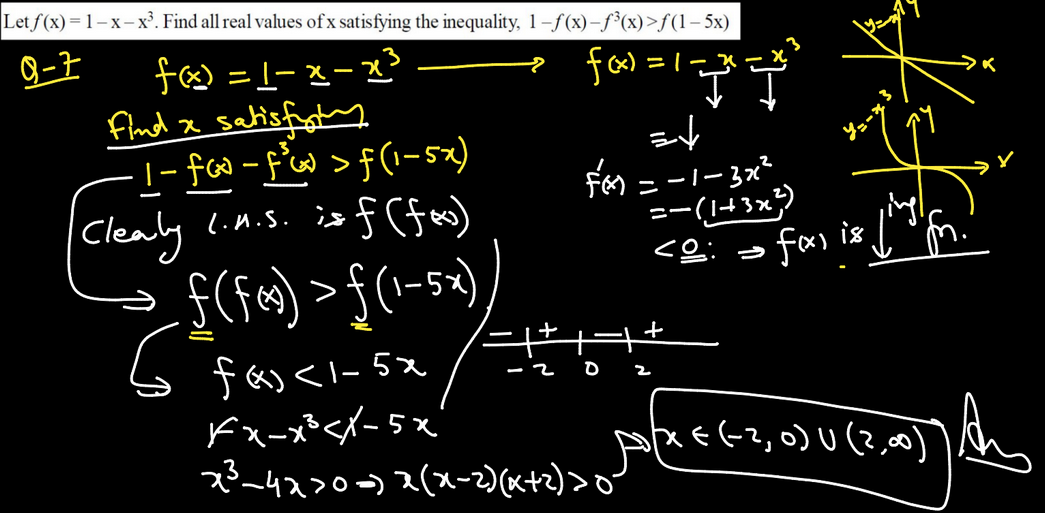 Let f(x) = 1 – x – x³. Find all real values of x satisfying the inequality, 1 – f(x) – f³(x) > f(1 – 5x)
Q-7 f(x) = 1 - x - x³
Find x satisfying
1 - f(x) - f³(x) > f(1-5x)
Clearly L.H.S. is f(f(x))
f(f(x)) > f(1-5x)
f(x) < 1 - 5x
1 - x - x³ < 1 - 5x
x³ - 4x > 0 ⇒ x(x-2)(x+2) > 0
f(x) = 1 - x - x³
= ↓
f'(x) = -1 - 3x²
= -(1+3x²)
< 0: ⇒ f(x) is ↓ing fn.
y=-x
y
x
y=-x³
y
x
- + - +
-2 0 2
⇒ x ∈ (-2, 0) ∪ (2, ∞) Ans